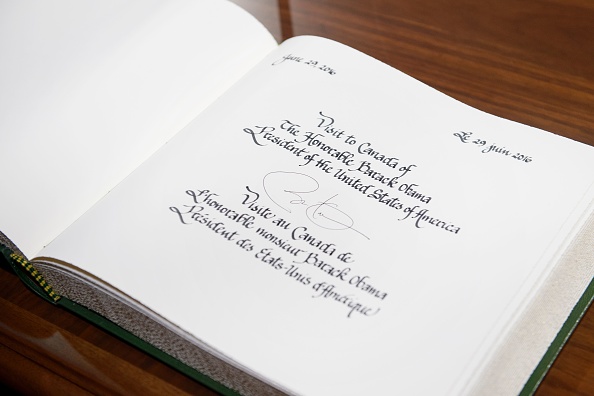 June 29, 2016
Le 29 juin 2016
Visit to Canada of
The Honorable Barack Obama
President of the United States of America
Visite au Canada de
L'honorable monsieur Barack Obama
Président des États-Unis d'Amérique